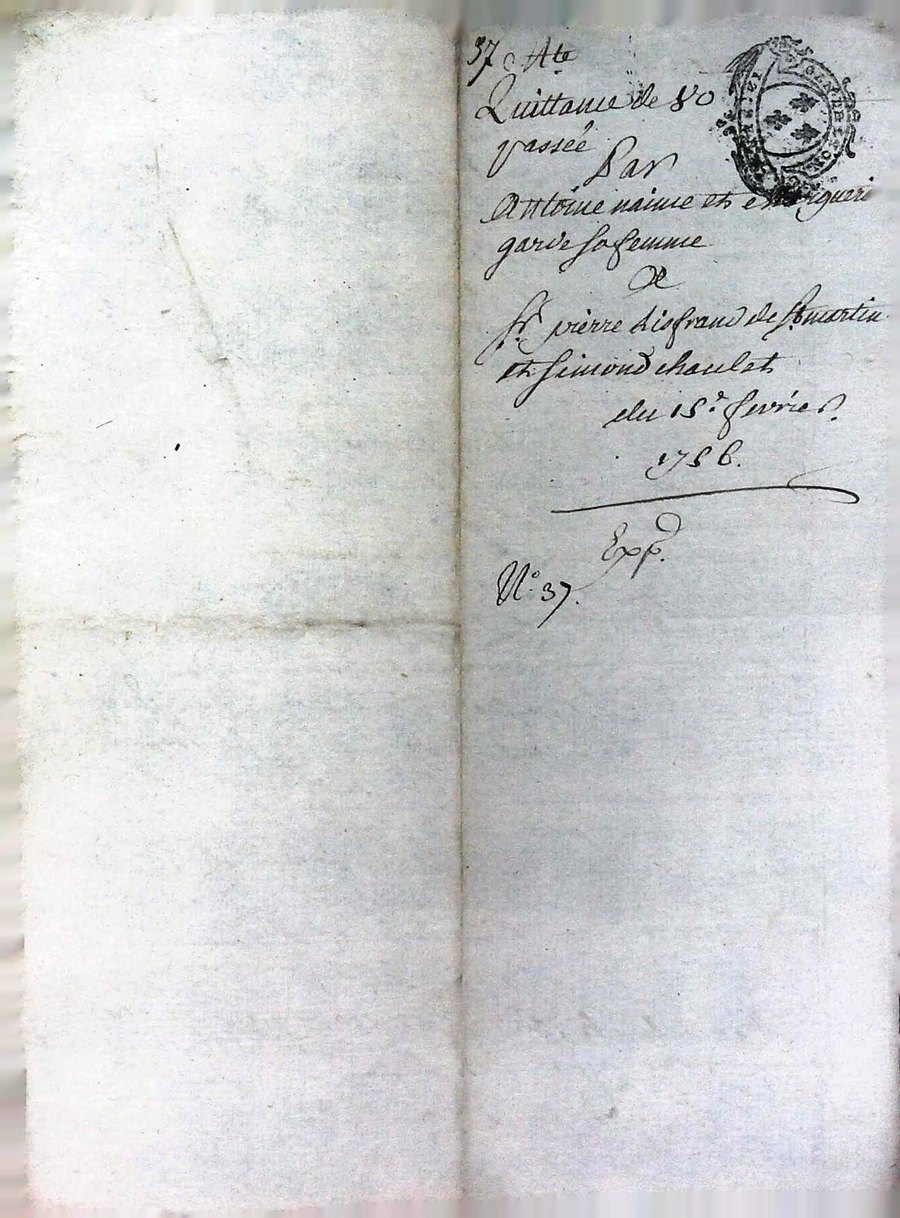 37 Ate
Quittance de 80
passée
Par
Antoine naime et margueri
garde sa femme
A
Sr. pierre disfrand de St martin
et Simond chaulet
du 15e. fevrier.
1756.
Exp.
No. 37.